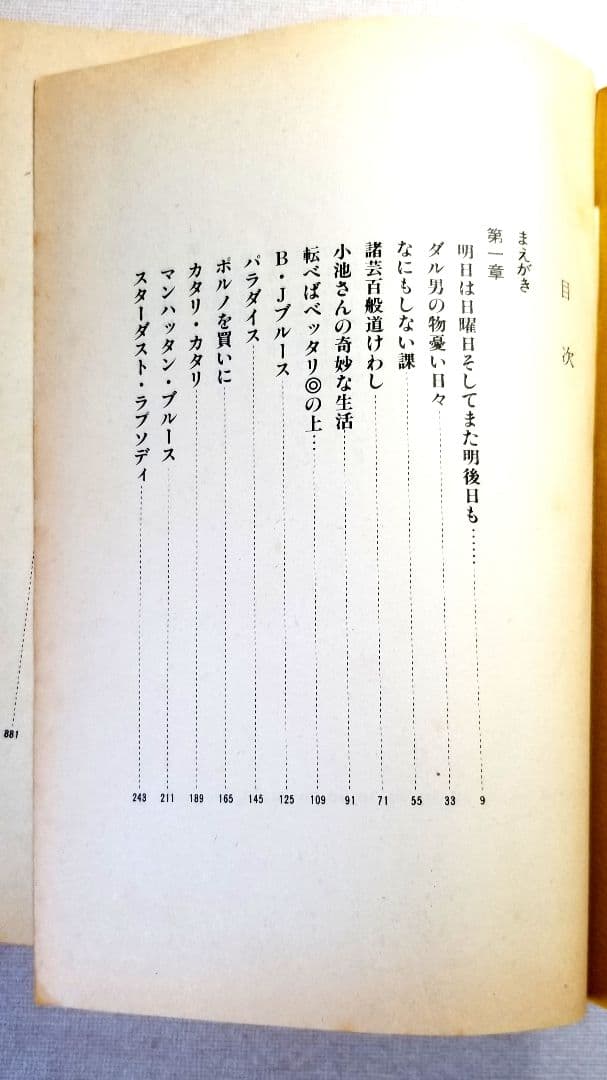 目次
まえがき
第一章
明日は日曜日そしてまた明後日も……9
ダル男の物憂い日々 33
なにもしない課 55
諸芸百般道けわし 71
小池さんの奇妙な生活 91
転べばベッタリ◎の上… 109
B・Jブルース 125
パラダイス 145
ポルノを買いに 165
カタリ・カタリ 189
マンハッタン・ブルース 211
スターダスト・ラプソディ 243
881